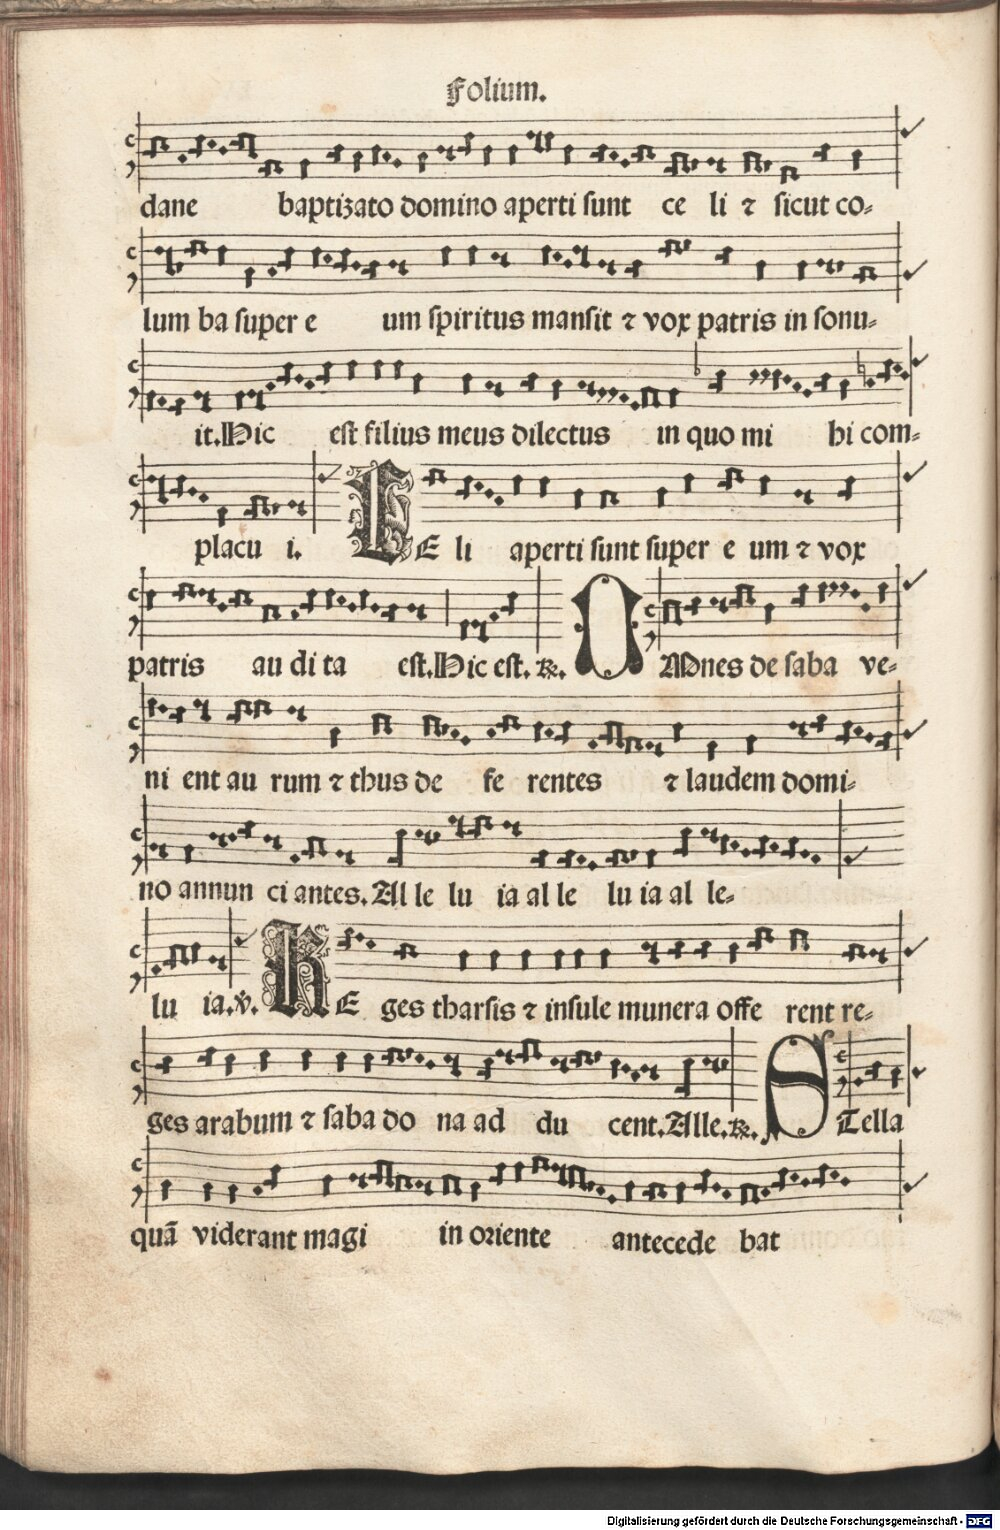 Folium.
dane baptizato domino aperti sunt ce li ⁊ sicut co-
lum ba super e um spiritus mansit ⁊ vox patris in sonu-
it. Hic est filius meus dilectus in quo mi hi com-
placu i. CE li aperti sunt super e um ⁊ vox
patris au di ta est. Hic est. ℞. OMnes de saba ve-
ni ent au rum ⁊ thus de fe rentes ⁊ laudem domi-
no annun ci antes. Al le lu ia al le lu ia al le-
lu ia. ℣. RE ges tharsis ⁊ insule munera offe rent re-
ges arabum ⁊ saba do na ad du cent. Alle. ℞. STella
quã viderant magi in oriente antecede bat
Digitalisierung gefördert durch die Deutsche Forschungsgemeinschaft - DFG